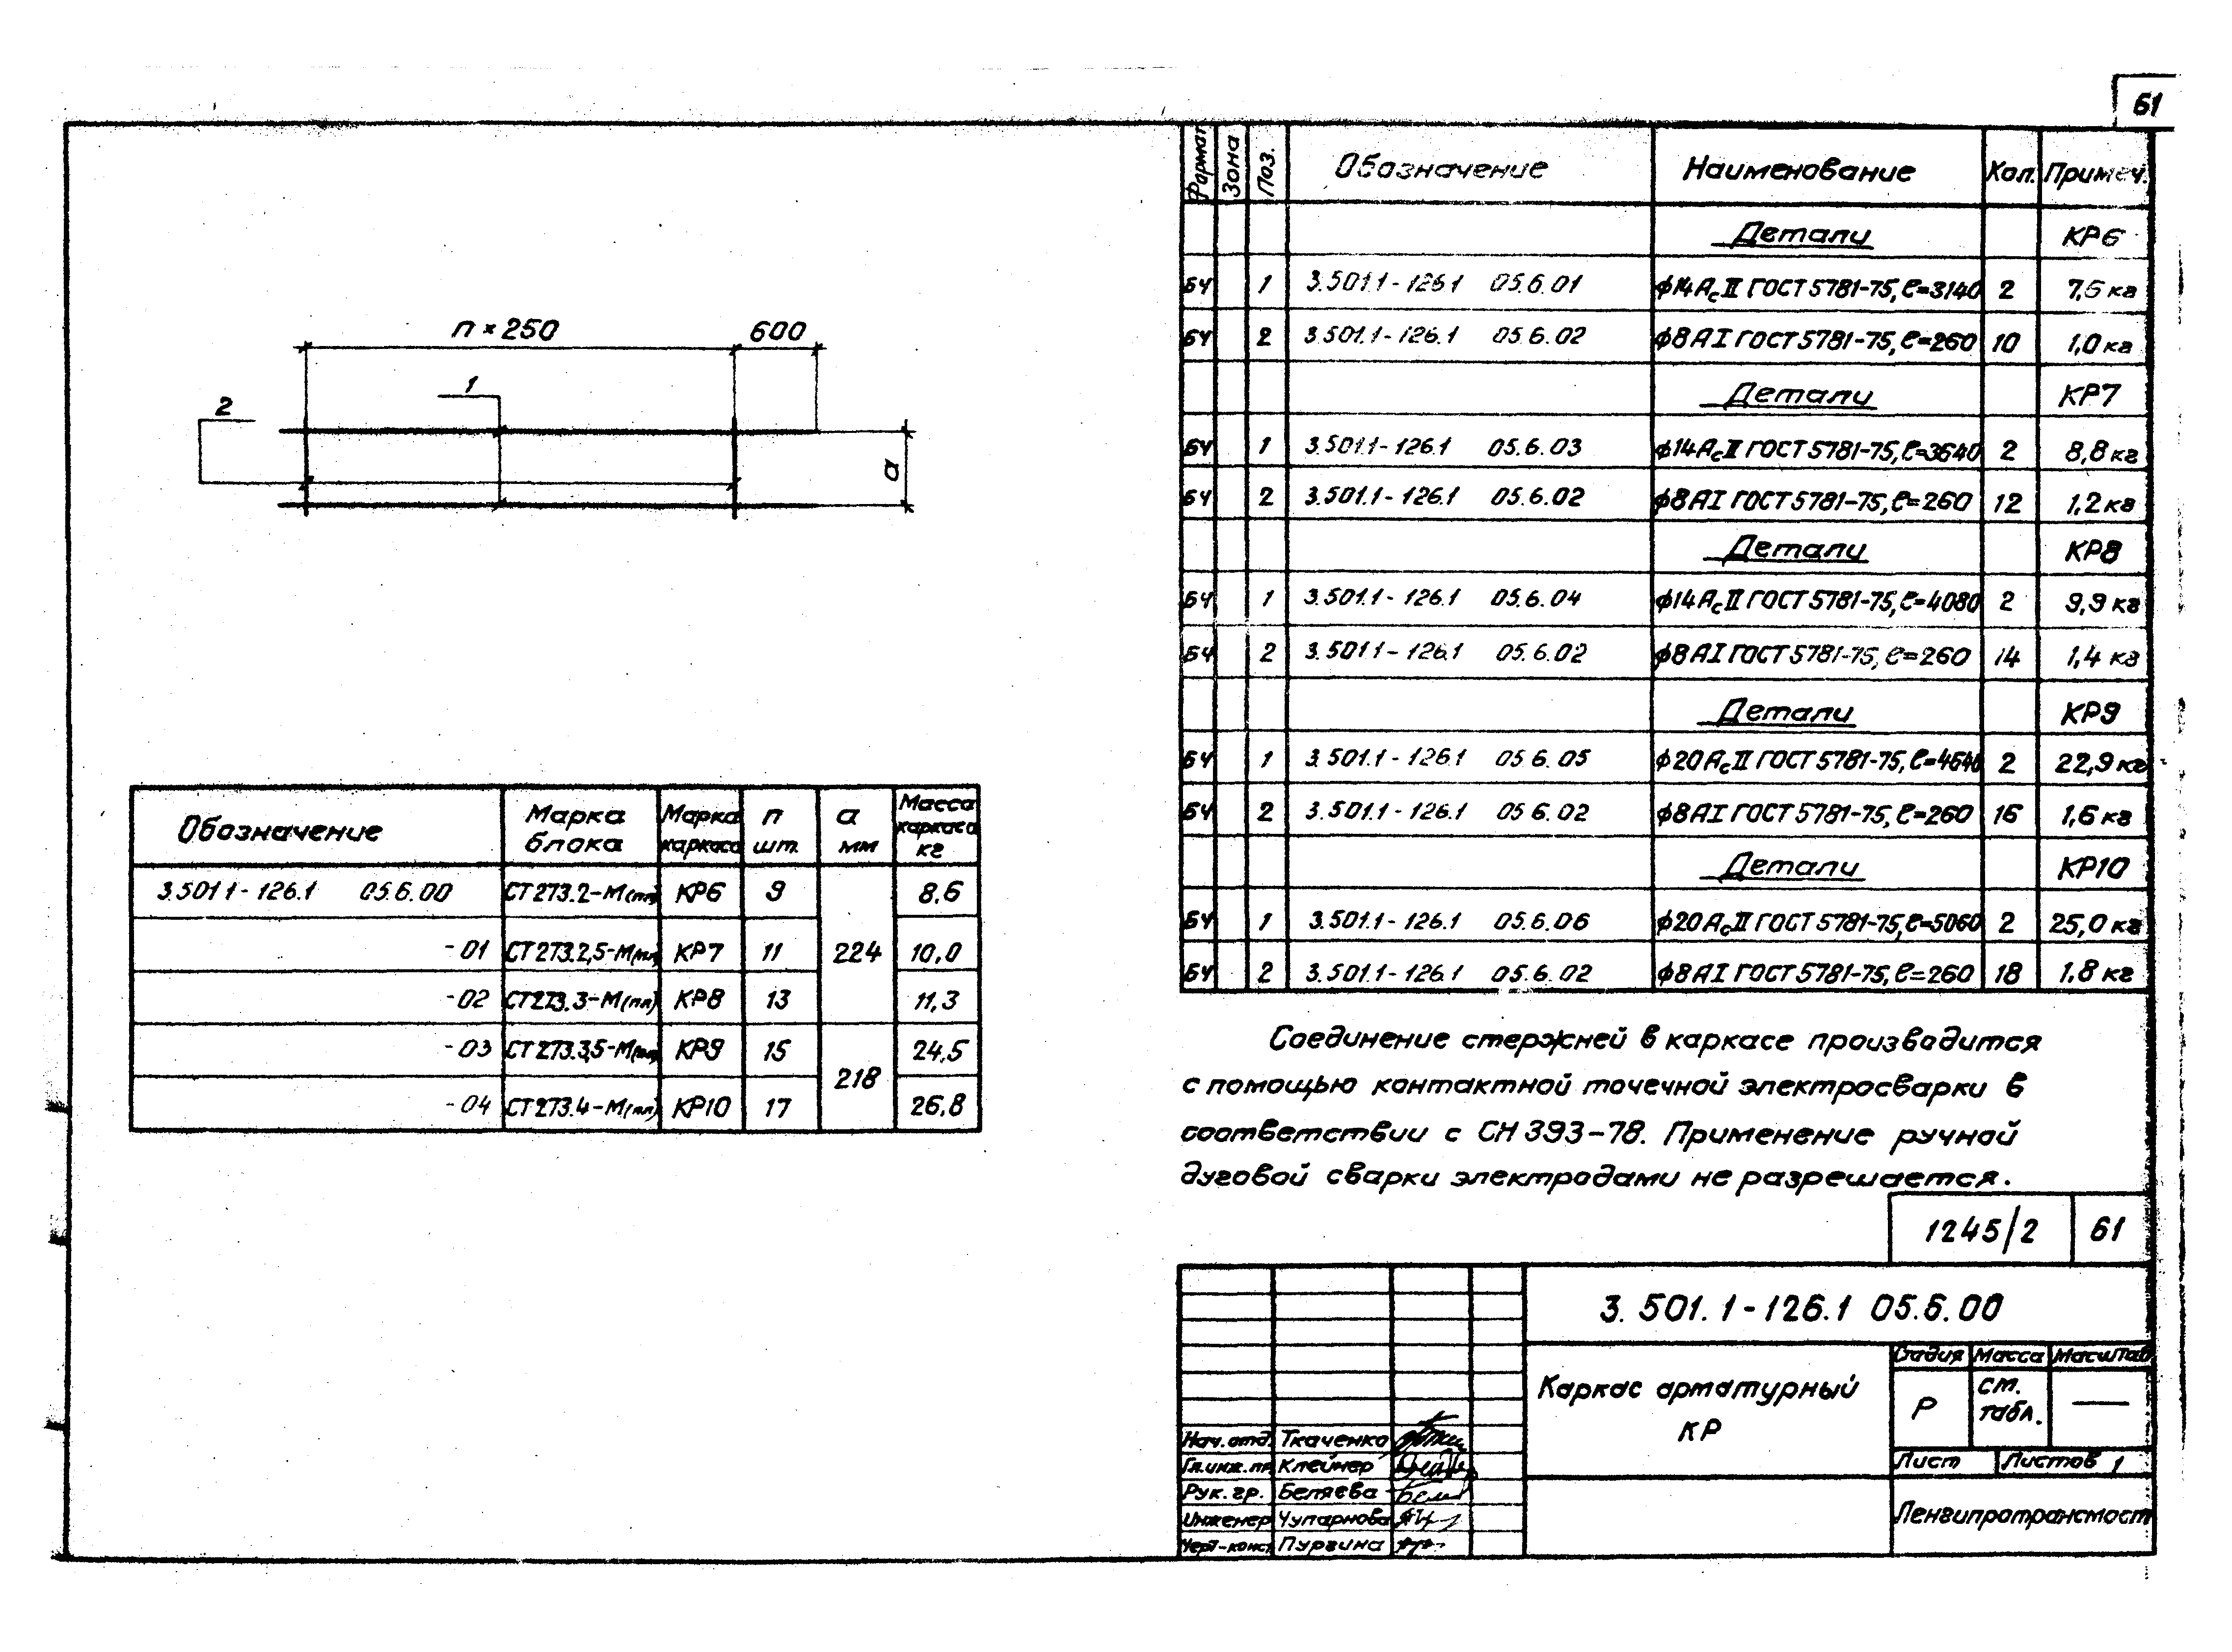 61
n × 250
600
1
2
а
Обозначение Марка блока Марка каркаса n шт. а мм Масса каркаса кг
3.501.1-126.1 05.6.00 СТ273.2-М(пл) КР6 9 224 8,6
-01 СТ273.2,5-М(пл) КР7 11 10,0
-02 СТ273.3-М(пл) КР8 13 11,3
-03 СТ273.3,5-М(пл) КР9 15 218 24,5
-04 СТ273.4-М(пл) КР10 17 26,8
Формат Зона Поз. Обозначение Наименование Кол. Примеч.
Детали КР6
БЧ 1 3.501.1-126.1 05.6.01 ϕ14АсII ГОСТ 5781-75, ℓ=3140 2 7,6 кг
БЧ 2 3.501.1-126.1 05.6.02 ϕ8АI ГОСТ 5781-75, ℓ=260 10 1,0 кг
Детали КР7
БЧ 1 3.501.1-126.1 05.6.03 ϕ14АсII ГОСТ 5781-75, ℓ=3640 2 8,8 кг
БЧ 2 3.501.1-126.1 05.6.02 ϕ8АI ГОСТ 5781-75, ℓ=260 12 1,2 кг
Детали КР8
БЧ 1 3.501.1-126.1 05.6.04 ϕ14АсII ГОСТ 5781-75, ℓ=4080 2 9,9 кг
БЧ 2 3.501.1-126.1 05.6.02 ϕ8АI ГОСТ 5781-75, ℓ=260 14 1,4 кг
Детали КР9
БЧ 1 3.501.1-126.1 05.6.05 ϕ20АсII ГОСТ 5781-75, ℓ=4640 2 22,9 кг
БЧ 2 3.501.1-126.1 05.6.02 ϕ8АI ГОСТ 5781-75, ℓ=260 16 1,6 кг
Детали КР10
БЧ 1 3.501.1-126.1 05.6.06 ϕ20АсII ГОСТ 5781-75, ℓ=5060 2 25,0 кг
БЧ 2 3.501.1-126.1 05.6.02 ϕ8АI ГОСТ 5781-75, ℓ=260 18 1.8 кг
Соединение стержней в каркасе производится
с помощью контактной точечной электросварки в
соответствии с СН 393-78. Применение ручной
дуговой сварки электродами не разрешается.
1245/2 61
3.501.1-126.1 05.6.00
Каркас арматурный
КР
Стадия Масса Масштаб
Р см. табл. —
Лист Листов 1
Ленгипротрансмост
Нач.отд. Ткаченко
Гл.инж.пр Клейнер
Рук.гр. Беляева
Инженер Чупарнова
Черт-конст Пургина